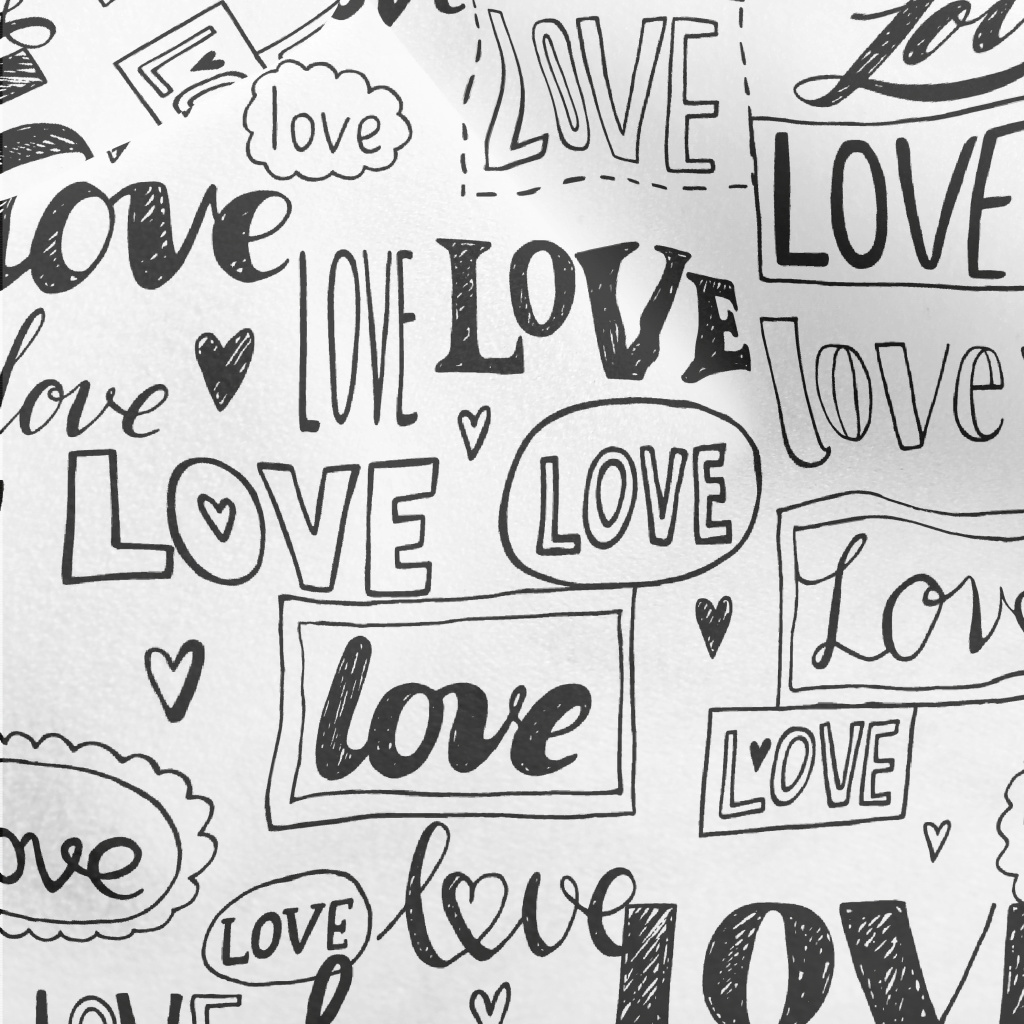 love
LOVE
Lov
LOVE
love
LOVE
LOVE
love
love
LOVE
LOVE
Lov
love
LOVE
ove
love
LOVE
LOVE
LOVE